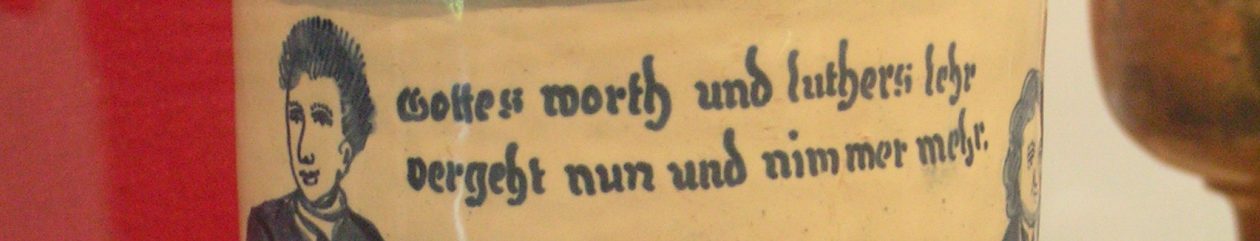 Gottes worth und luthers lehr
vergeht nun und nimmer mehr.